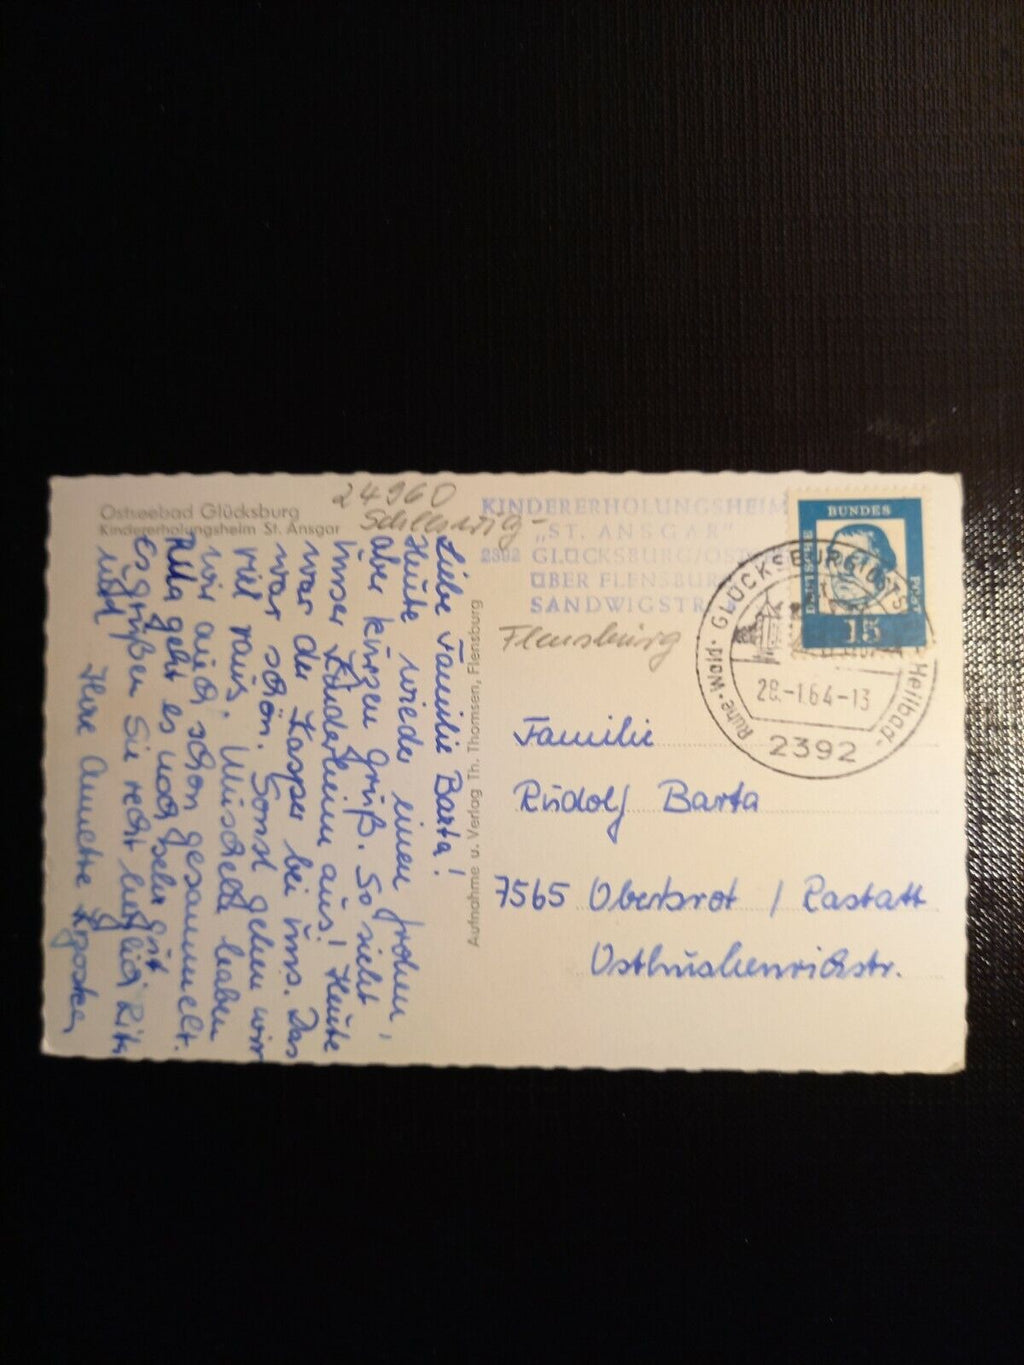 Ostseebad Glücksburg
Kindererholungsheim St. Ansgar
24960
Schleswig-
Flensburg
KINDERERHOLUNGSHEIM
„ST. ANSGAR"
2392 GLÜCKSBURG/OSTS
ÜBER FLENSBURG
SANDWIGSTR.
DEUTSCHE
BUNDES
POST
15
GLÜCKSBURG (OSTS
Ruhe · Wald · Heilbad
28.-1.64-13
2392
Aufnahme u. Verlag Th. Thomsen, Flensburg
Liebe Familie Barta!
Heute wieder einen frohen,
aber kurzen Gruß. So sieht
unser Kinderheim aus! Heute
war der Kasper bei uns. Das
war schön. Sonst gehen wir
viel raus. Muscheln haben
wir auch schon gesammelt.
geht es noch sehr gut
Es grüßen Sie recht herzlich Rita
und
Ihre Annette
Familie
Rudolf Barta
7565 Obertsrot / Rastatt